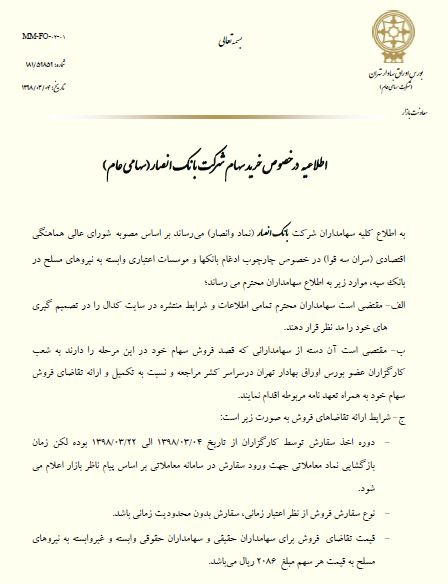 بسمه تعالی
MM-FO-۰۷-۰۱
شماره: ۱۸۱/۵۹۸۵۹
تاریخ: ۱۳۹۸/۰۳/۰۴
بورس اوراق بهادار تهران
(شرکت سهامی عام)
معاونت بازار
اطلاعیه در خصوص خرید سهام شرکت بانک انصار (سهامی عام)
به اطلاع کلیه سهامداران شرکت بانک انصار (نماد وانصار) می‌رساند بر اساس مصوبه شورای عالی هماهنگی
اقتصادی (سران سه قوا) در خصوص چارچوب ادغام بانکها و موسسات اعتباری وابسته به نیروهای مسلح در
بانک سپه، موارد زیر به اطلاع سهامداران محترم می رساند؛
الف- مقتضی است سهامداران محترم تمامی اطلاعات و شرایط منتشره در سایت کدال را در تصمیم گیری
های خود را مد نظر قرار دهند.
ب- مقتصی است آن دسته از سهامدارانی که قصد فروش سهام خود در این مرحله را دارند به شعب
کارگزاران عضو بورس اوراق بهادار تهران درسراسر کشر مراجعه و نسبت به تکمیل و ارائه تقاضای فروش
سهام خود به همراه تعهد نامه مربوطه اقدام نمایند.
ج- شرایط ارائه تقاضاهای فروش به صورت زیر است:
- دوره اخذ سفارش توسط کارگزاران از تاریخ ۱۳۹۸/۰۳/۰۴ الی ۱۳۹۸/۰۳/۲۲ بوده لکن زمان
بازگشایی نماد معاملاتی جهت ورود سفارش در سامانه معاملاتی بر اساس پیام ناظر بازار اعلام می
شود.
- نوع سفارش فروش از نظر اعتبار زمانی، سفارش بدون محدودیت زمانی باشد.
- قیمت تقاضای فروش برای سهامداران حقیقی و سهامداران حقوقی وابسته و غیروابسته به نیروهای
مسلح به قیمت هر سهم مبلغ ۲۰۸۶ ریال می‌باشد.